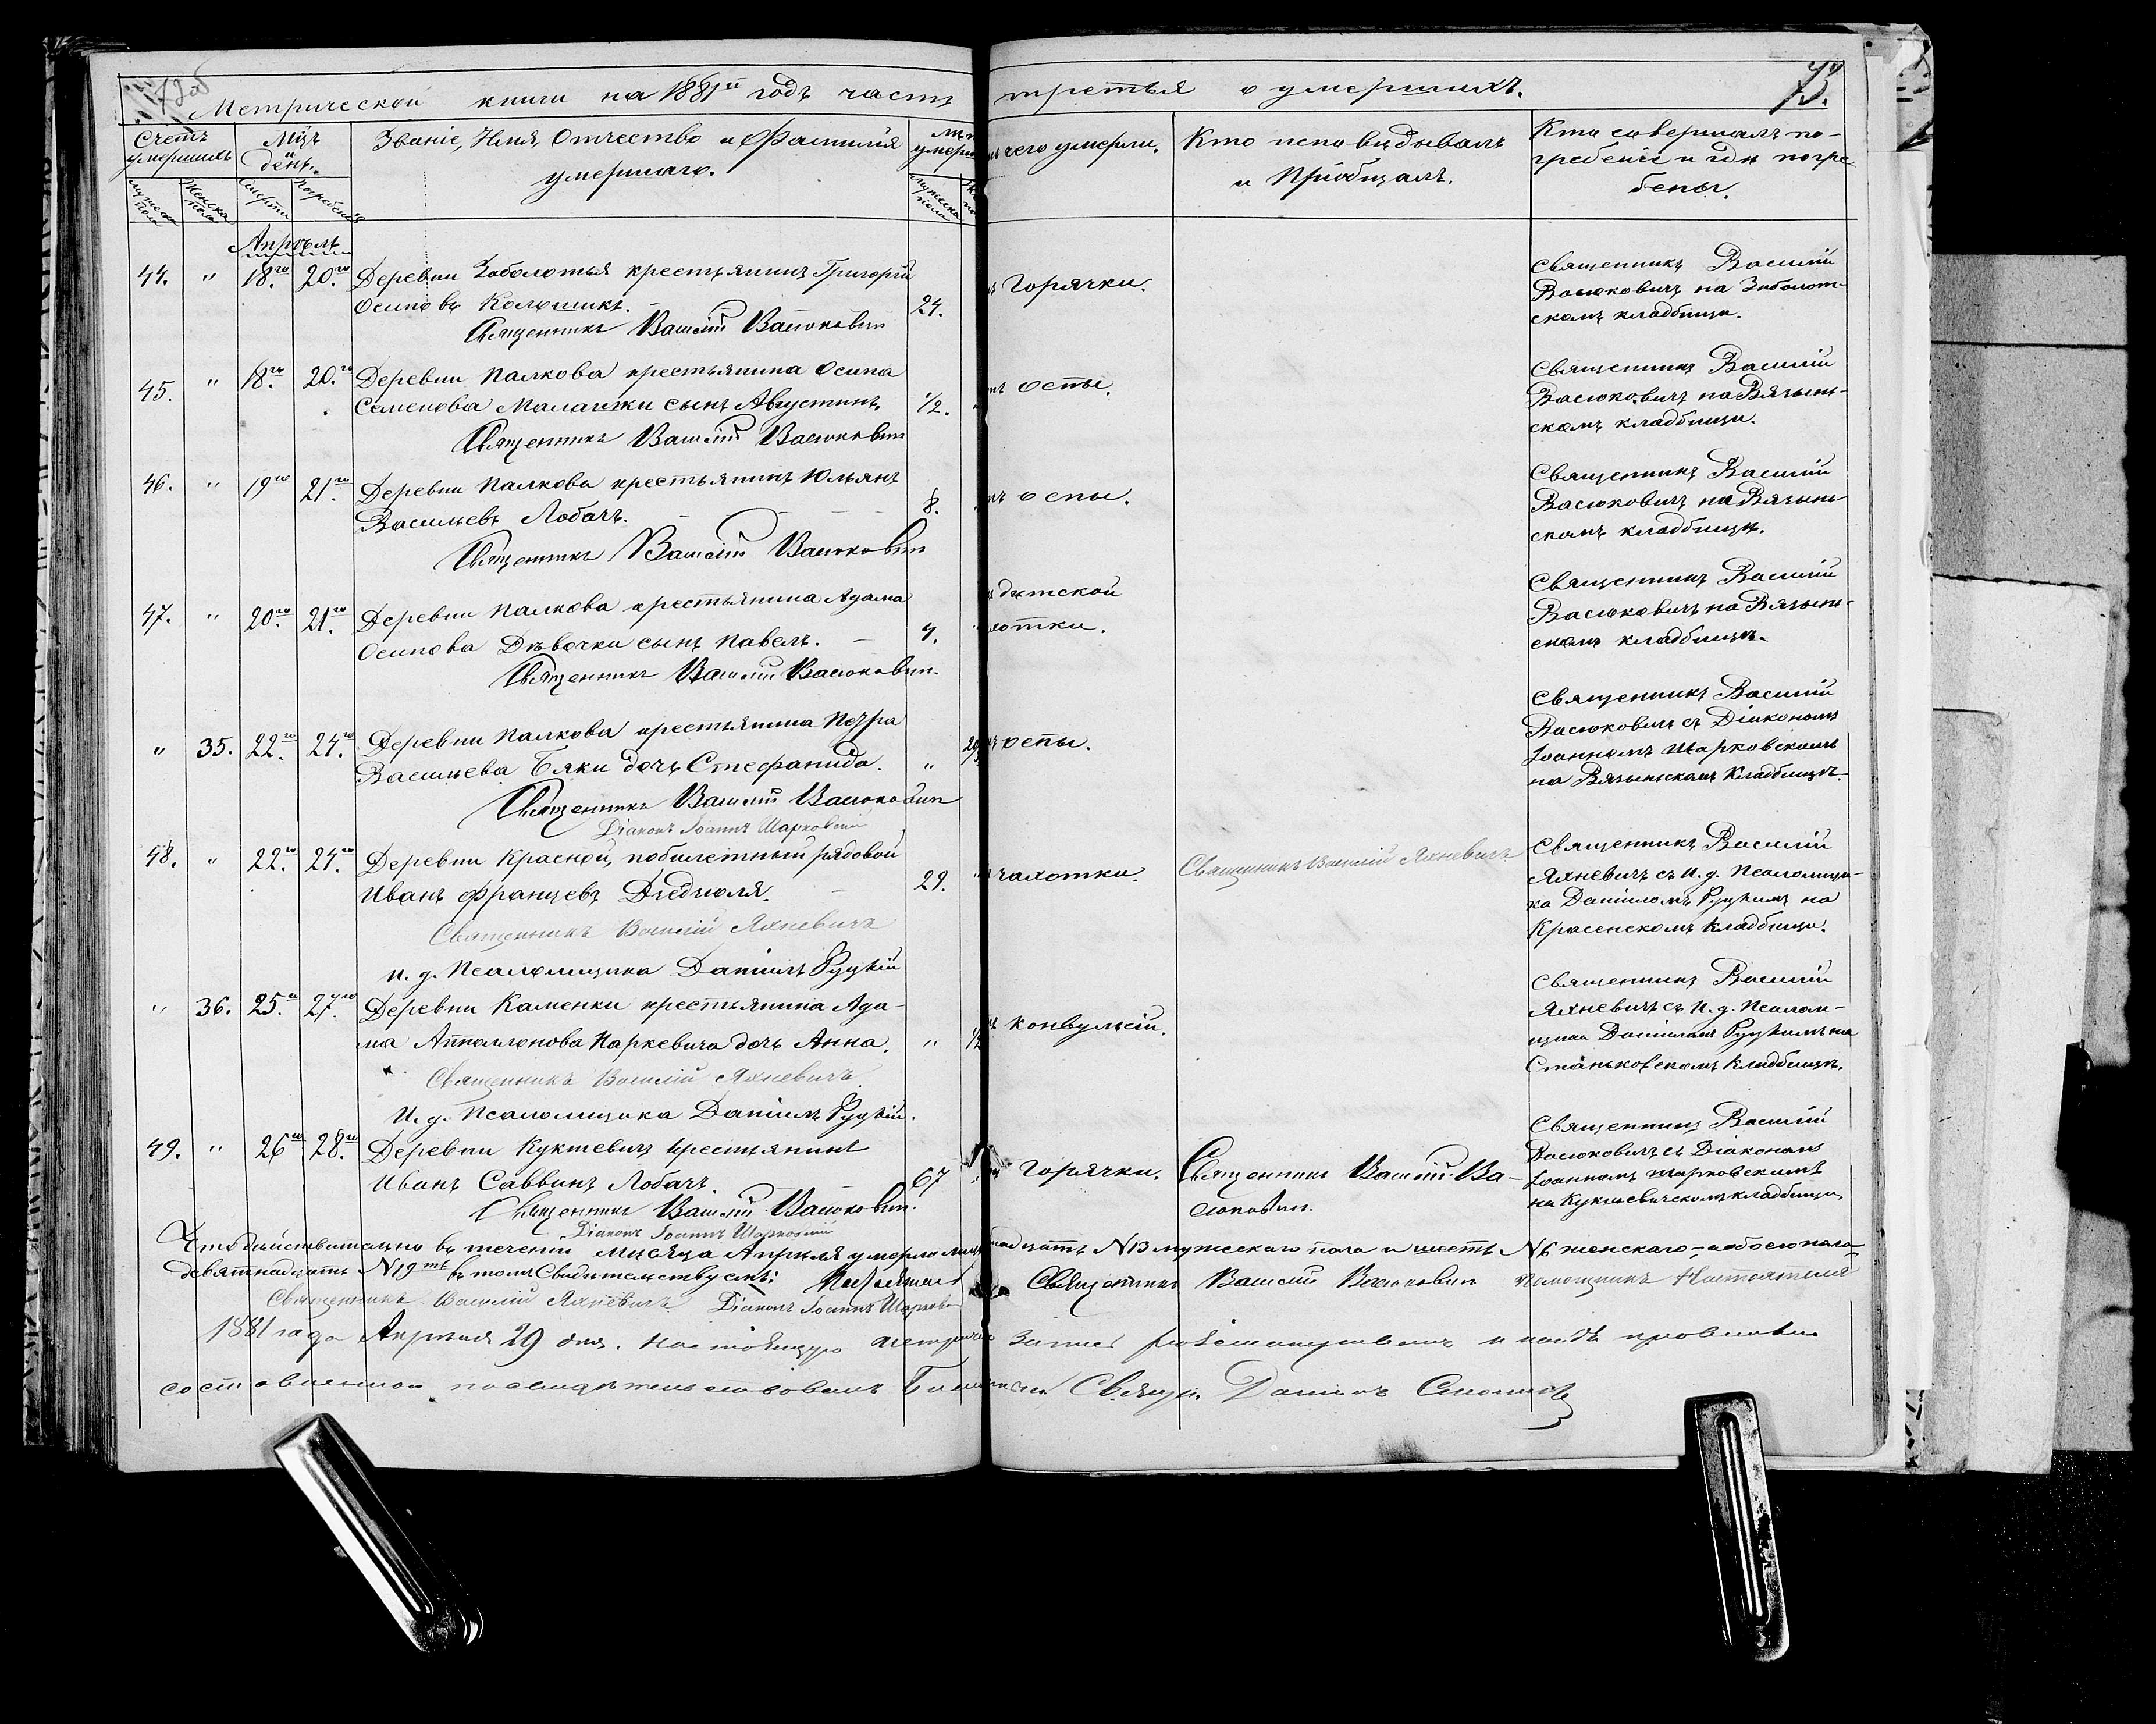 72об
73.
Метрической книги на 1881й годъ часть третья о умершихъ.
Счетъ умершихъ
Мужеска пола
Женска пола
Мѣц и день.
Смерти
Погребенія
Званіе, Имя, Отчество и Фамилія умершаго.
Мужеска пола
чего умерли.
Кто исповѣдывалъ и Пріобщалъ.
Кто совершалъ погребеніе и гдѣ погребены.
Апрѣль
44. " 18.го 20.го Деревни Заболотья крестьянинъ Григорій
Осиповъ Калошика. 24. Горячки.
Священникъ Василій Васюковичъ
Священникъ Василій
Васюковичъ на Заболот-
скомъ кладбищѣ.
45. " 18.го 20.го Деревни Палкова крестьянина Осипа
Семенова Маланжи сынъ Августинъ. 1/2. оспы.
Священникъ Василій Васюковичъ
Священникъ Василій
Васюковичъ на Вязынь-
скомъ кладбищѣ.
46. " 19го 21.го Деревни Палкова крестьянинъ Юльянъ
Васильевъ Лобачъ. 8. оспы.
Священникъ Василій Васюковичъ
Священникъ Василій
Васюковичъ на Вязынь-
скомъ кладбищѣ.
47. " 20.го 21.го Деревни Палкова крестьянина Адама
Осипова Дѣвочки сынъ Павелъ. 4. дѣтской
хотки.
Священникъ Василій Васюковичъ.
Священникъ Василій
Васюковичъ на Вязынь-
скомъ кладбищѣ.
" 35. 22.го 24.го Деревни Палкова крестьянина Петра
Васильева Бяки дочь Стефанида. " оспы.
Священникъ Василій Васюковичъ
Діаконъ Іоаннъ Шарковскій
Священникъ Василій
Васюковичъ съ Діакономъ
Іоанномъ Шарковскимъ
на Вязыньскомъ Кладбищѣ.
48. " 22.го 24.го Деревни Красной, побилетный рядовой
Иванъ Францевъ Дѣдюля. 29. чахотки. Священникъ Василій Яхневичъ
Священникъ Василій Яхневичъ
и. д. Псаломщика Даніилъ Руцкій
Священникъ Василій
Яхневичъ съ И. д. Псаломщи-
ка Даніиломъ Руцкимъ на
Красенскомъ Кладбищѣ.
" 36. 25.го 27.го Деревни Каменки крестьянина Ада-
ма Апполлонова Наркевича дочь Анна. " 1/2 конвульсіи.
Священникъ Василій Яхневичъ.
И. д. Псаломщика Даніилъ Руцкій.
Священникъ Василій
Яхневичъ съ И. д. Псалом-
щика Даніиломъ Руцкимъ на
Станьковскомъ Кладбищѣ.
49. " 26го 28.го Деревни Кукшевичъ крестьянинъ
Иванъ Саввинъ Лобачъ. 67 Горячки. Священникъ Василій Ва-
сюковичъ.
Священникъ Василій Васюковичъ.
Діаконъ Іоаннъ Шарковскій
Священникъ Василій
Васюковичъ съ Діакономъ
Іоанномъ Шарковскимъ
на Кукшевичскомъ кладбищѣ.
Что дѣйствительно въ теченіи мѣсяца Апрѣля умерло надцать N13 мужескаго пола и шесть N6 женскаго, а обоего пола
девятнадцать N19ть въ томъ Свидѣтельствуемъ: Священникъ Василій Васюковичъ помощникъ Настоятеля
Священникъ Василій Яхневичъ Діаконъ Іоаннъ Шарков
1881 года Апрѣля 29 дня. Настоящую запись
составленною Свящ. Даніилъ